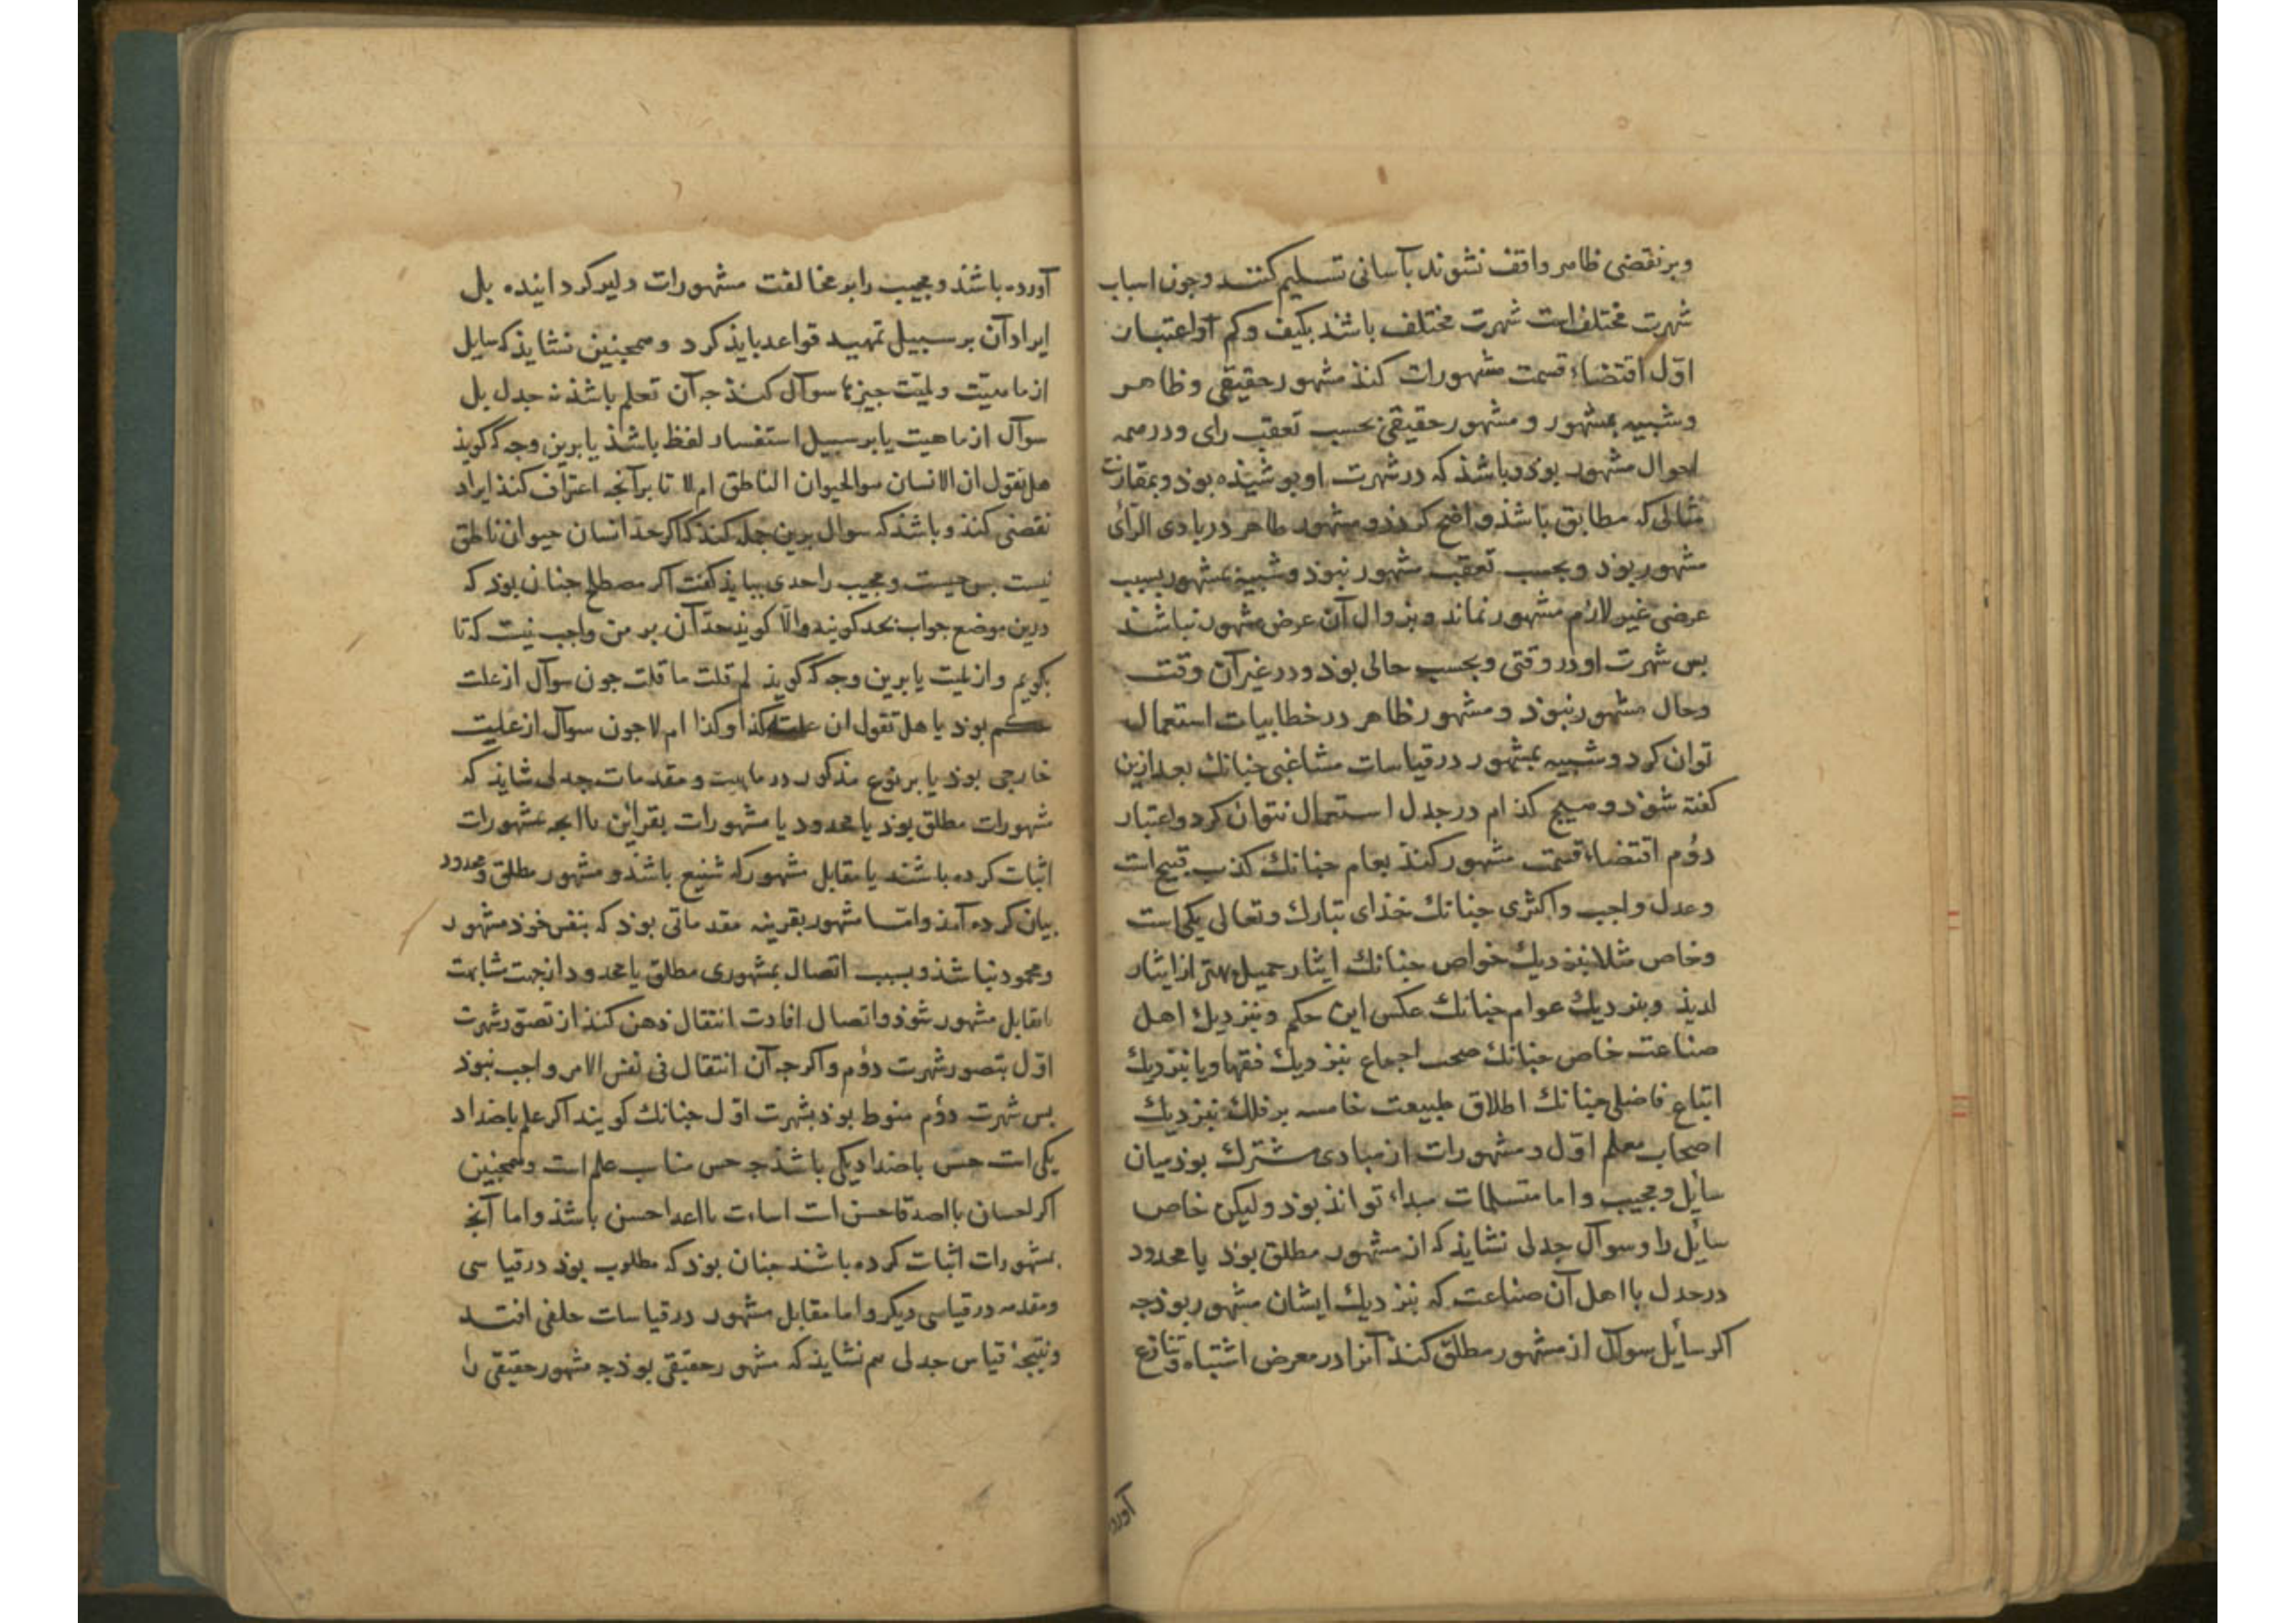 وبر نقضی ظاهر واقف نشوند بآسانی تسلیم کنند و جون اسباب
شهرت مختلف است شهرت مختلف باشذ بکیف و کم و اعتبار
اول اقتضاء قسمت مشهورات کنذ مشهور حقیقی و ظاهر
و شبیه بمشهور و مشهور حقیقی بحسب تعقب رای و در همه
احوال مشهور بوذ و باشذ که در شهرت او بوشیذه بوذ و بمقارنت
مثالی که مطابق باشذ واضح کردذ و مشهور ظاهر در بادی الرأی
مشهور بوذ و بحسب تعقب مشهور نبوذ و شبیه بمشهور بسبب
عرضی غیر لازم مشهور نماند و بزوال آن عرض مشهور نباشد
بس شهرت او در وقتی و بحسب حالی بوذ و در غیر آن وقت
و حال مشهور نبوذ و مشهور ظاهر در خطابیات استعمال
توان کرد و شبیه بمشهور در قیاسات مشاغبی جنانك بعد ازین
کفته شوذ و هیج کذام در جدل استعمال نتوان کرد و اعتبار
دوم اقتضاء قسمت مشهور کنذ بعام جنانك کذب قبیح است
و عدل واجب و اکثری جنانك خذای تبارك و تعالی یکی است
و خاص مثلا بنزدیك خواص جنانك ایثار جمیل بهتر از ایثار
لذیذ و بنزدیك عوام جنانك عکس این حکم و بنزدیك اهل
صناعت خاص جنانك صحت اجماع بنزدیك فقها و یا بنزدیك
اتباع فاضلی جنانك اطلاق طبیعت خامسه بر فلك بنزدیك
اصحاب معلم اول و مشهورات از مبادی مشترك بوذ میان
سایل و مجیب و اما متسلمات مبداء تواند بوذ و لیکن خاص
سایل را و سوآل جدلی نشایذ که از مشهور مطلق بوذ یا محدود
در جدل با اهل آن صناعت که بنزدیك ایشان مشهور بوذ جه
اکر سایل سوآل از مشهور مطلق کنذ آنرا در معرض اشتباه و تنازع
آورد
آورده باشذ و مجیب را بر مخالفت مشهورات دلیر کردانیده بل
ایراد آن بر سبیل تمهید قواعد بایذ کرد و همجنین نشایذ که سایل
از ماهیت و لمیت جیزها سوآل کنذ جه آن تعلم باشذ نه جدل بل
سوآل از ماهیت یا بر سبیل استفسار لفظ باشذ یا برین وجه که کویذ
هل تقول ان الانسان هو الحیوان الناطق ام لا تا بر آنجه اعتراف کنذ ایراد
نقضی کنذ و باشذ که سوال برین جمله کنذ که اکر حد انسان حیوان ناطق
نیست بس جیست و مجیب را حدی ببایذ کفت اکر مصطلح جنان بوذ که
درین موضع جواب بحد کویند و الا کویذ حد آن بر من واجب نیست که تا
بکویم و از لمیت یا برین وجه که کویذ لم قلت ما قلت جون سوآل از علت
حکم بوذ یا هل تقول ان علته کذا و کذا ام لا جون سوآل از علیت
خارجی بوذ یا بر نوع مذکور در ماهیت و مقدمات جدلی شایذ که
مشهورات مطلق بوذ یا محدود یا مشهورات بقراین یا آنجه بمشهورات
اثبات کرده باشند یا مقابل مشهور که شنیع باشذ و مشهور مطلق و محدود
بیان کرده آمذ و اما مشهور بقرینه مقدماتی بوذ که بنفس خوذ مشهور
و محمود نباشذ و بسبب اتصال بمشهوری مطلق یا محدود از جهت مشابهت
یا تقابل مشهور شوذ و اتصال افادت انتقال ذهن کنذ از تصور شهرت
اول بتصور شهرت دوم و اکرجه آن انتقال فی نفس الامر واجب نبوذ
بس شهرت دوم منوط بوذ بشهرت اول جنانك کویند اکر علم باضداد
یکی است حس باضداد یکی باشذ جه حس مناسب علم است و همجنین
اکر احسان با اصدقا حسن است اساءت با اعدا حسن باشذ و اما آنج
بمشهورات اثبات کرده باشند جنان بوذ که مطلوب بوذ در قیاسی
و مقدمه در قیاسی دیکر و اما مقابل مشهور در قیاسات خلفی افتد
و نتیجهٔ قیاس جدلی هم نشایذ که مشهور حقیقی بوذ جه مشهور حقیقی را